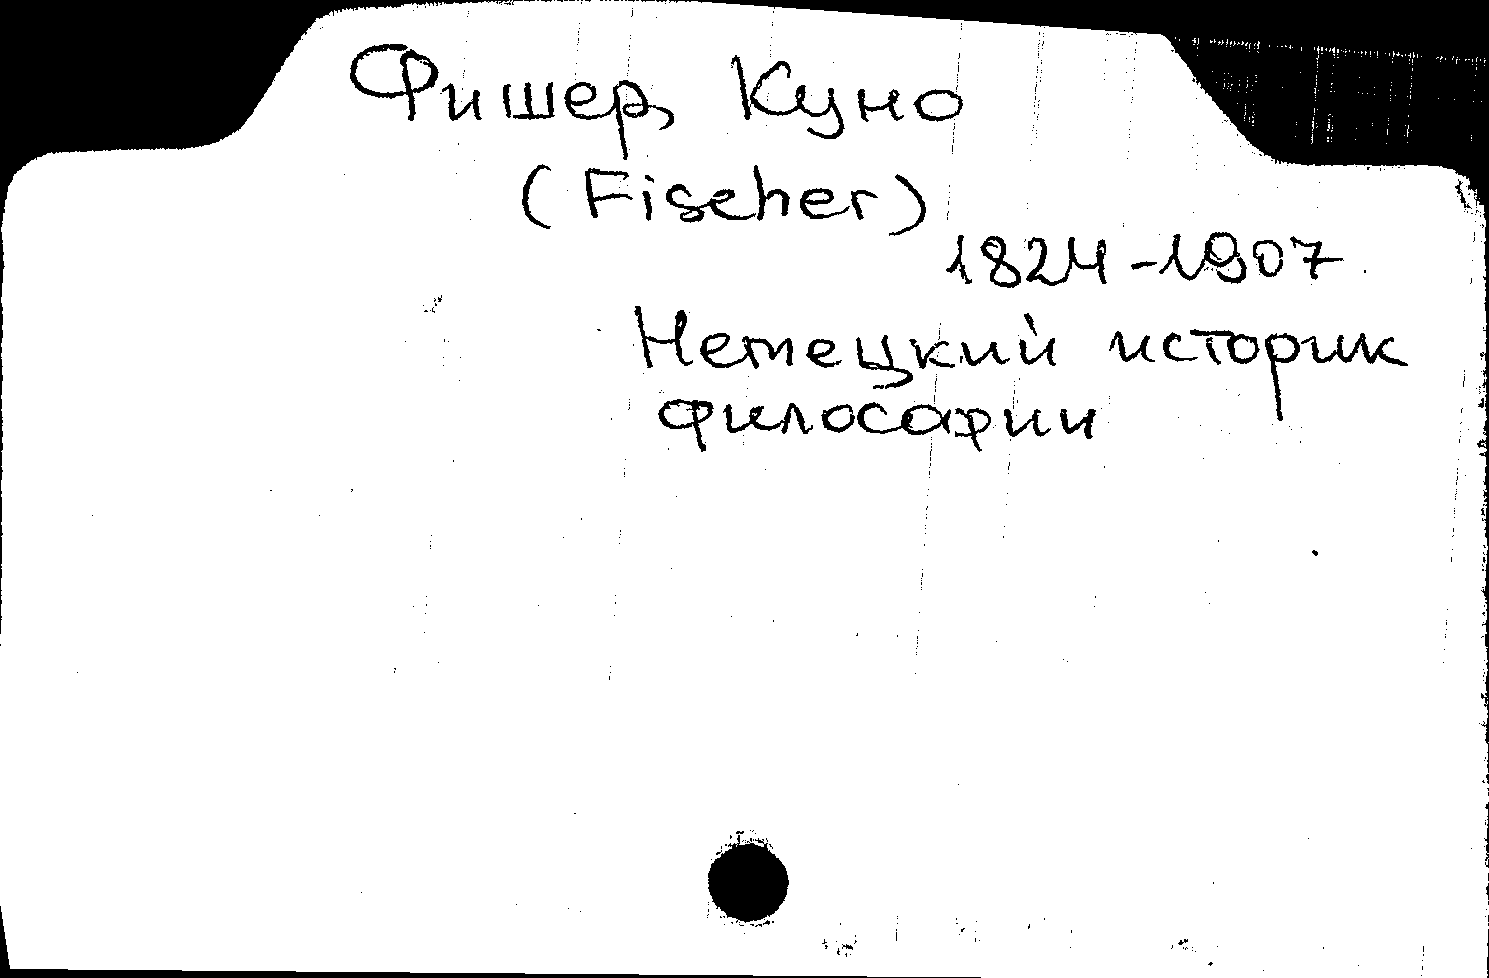 Фишер, Куно
(Fischer)
1824-1907
Немецкий историк
философии